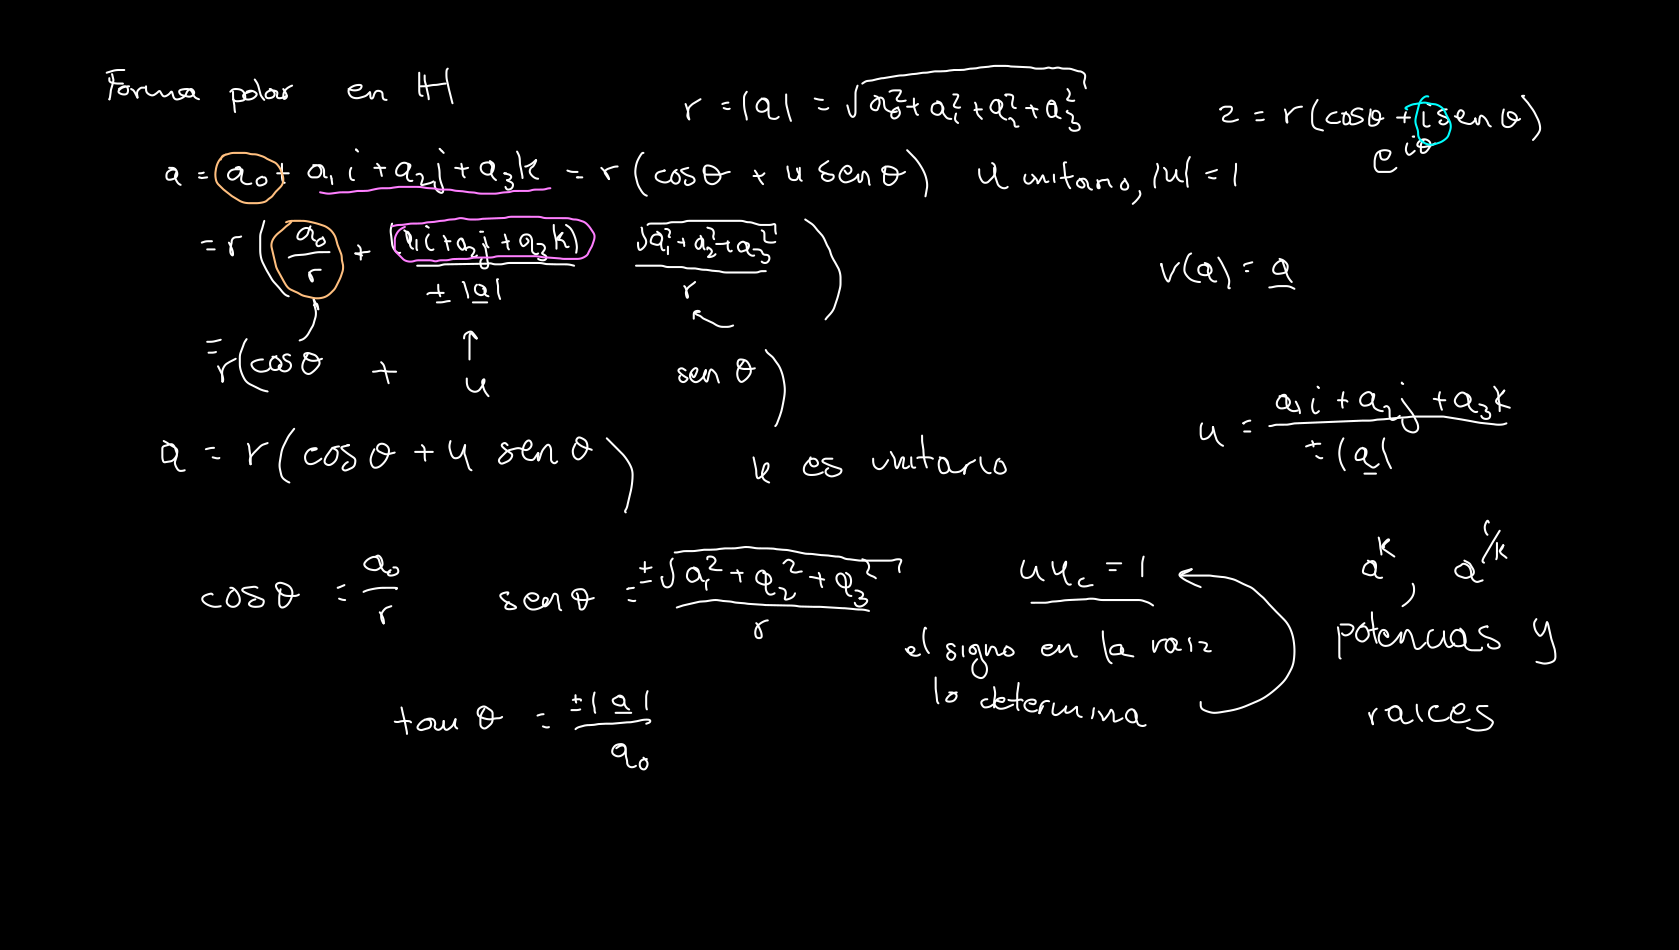 Forma polar en ℍ
r = |a| = √(a₀² + a₁² + a₂² + a₃²)
z = r(cosθ + i senθ)
e^{iθ}
a = a₀ + a₁i + a₂j + a₃k = r(cosθ + u senθ) u unitario, |u| = 1
= r( a₀/r + (a₁i + a₂j + a₃k)/(± |a̲|) √(a₁² + a₂² + a₃²)/r )
v(a) = a̲
= r(cosθ + u senθ)
u = (a₁i + a₂j + a₃k)/(±|a̲|)
a = r(cosθ + u senθ) u es unitario
cosθ = a₀/r senθ = ±√(a₁² + a₂² + a₃²)/r u u_c = 1 a^k, a^{1/k}
el signo en la raiz
lo determina
potencias y
raices
tan θ = ±|a̲|/a₀